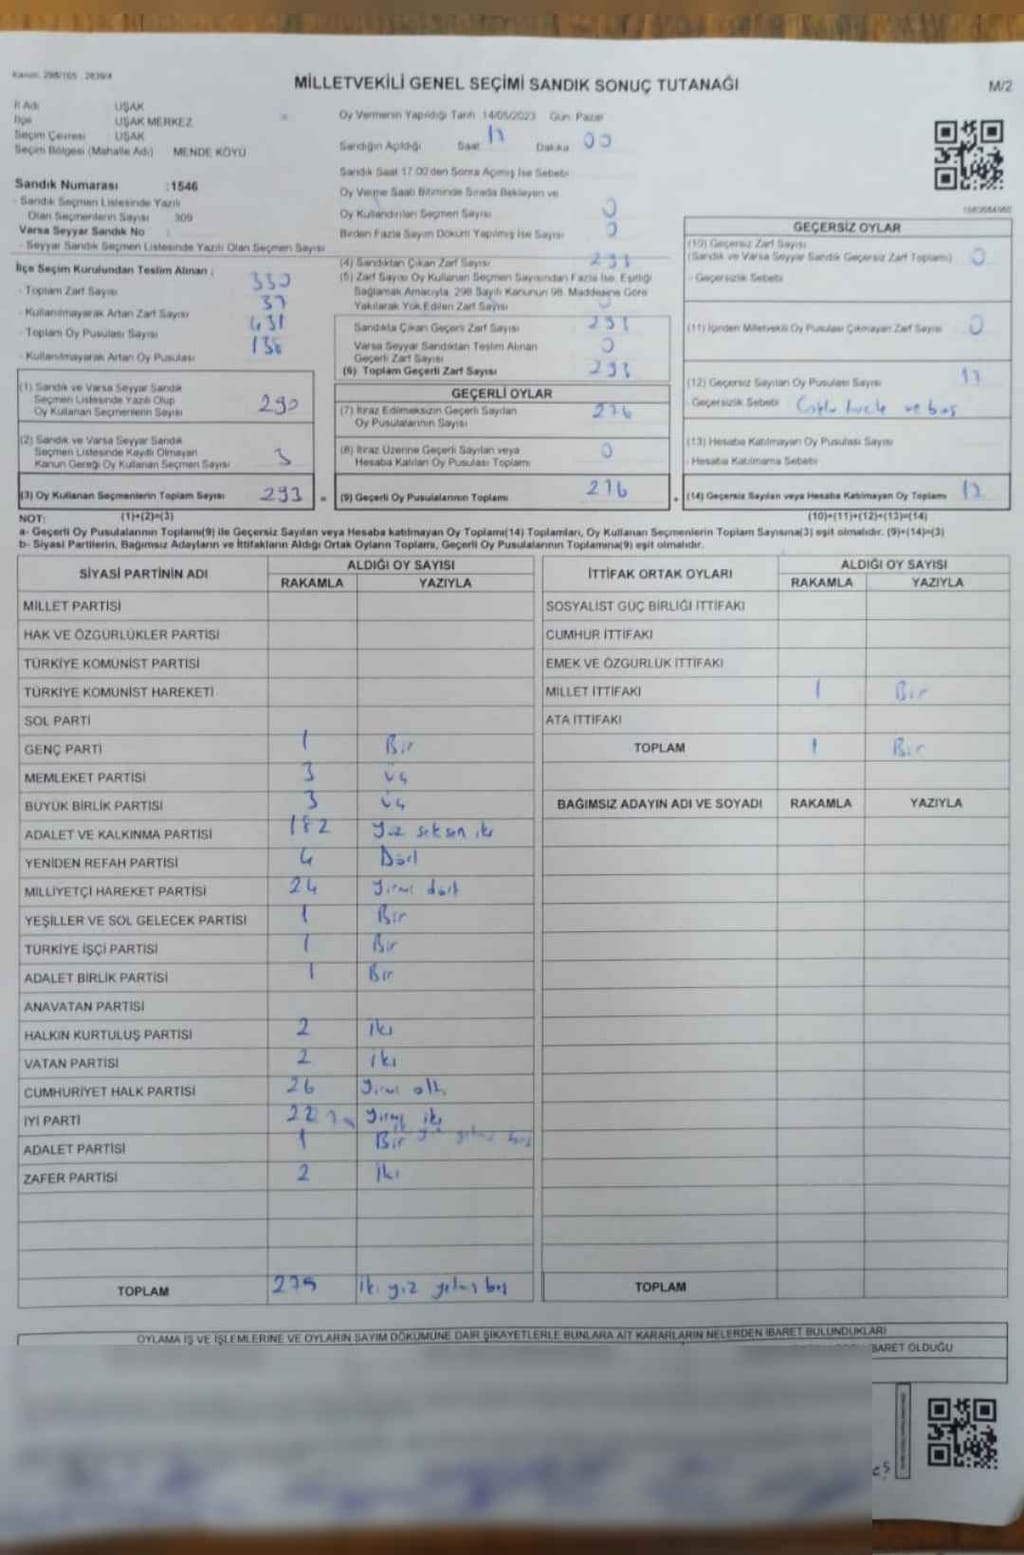 Kanun: 298/105 - 2839/4
MİLLETVEKİLİ GENEL SEÇİMİ SANDIK SONUÇ TUTANAĞI
M/2
İl Adı UŞAK
İlçe UŞAK MERKEZ
Seçim Çevresi UŞAK
Seçim Bölgesi (Mahalle Adı) MENDE KÖYÜ
Sandık Numarası :1546
- Sandık Seçmen Listesinde Yazılı
Olan Seçmenlerin Sayısı 309
Varsa Seyyar Sandık No
- Seyyar Sandık Seçmen Listesinde Yazılı Olan Seçmen Sayısı
İlçe Seçim Kurulundan Teslim Alınan ;
- Toplam Zarf Sayısı 330
- Kullanılmayarak Artan Zarf Sayısı 37
- Toplam Oy Pusulası Sayısı 431
- Kullanılmayarak Artan Oy Pusulası 138
(1) Sandık ve Varsa Seyyar Sandık
Seçmen Listesinde Yazılı Olup
Oy Kullanan Seçmenlerin Sayısı 290
(2) Sandık ve Varsa Seyyar Sandık
Seçmen Listesinde Kayıtlı Olmayan
Kanun Gereği Oy Kullanan Seçmen Sayısı 3
(3) Oy Kullanan Seçmenlerin Toplam Sayısı 293 =
Oy Vermenin Yapıldığı Tarih 14/05/2023 Gün Pazar
Sandığın Açıldığı Saat 17 Dakika 00
Sandık Saat 17:00'den Sonra Açılmış İse Sebebi
Oy Verme Saati Bitiminde Sırada Bekleyen ve
Oy Kullandırılan Seçmen Sayısı 0
Birden Fazla Sayım Döküm Yapılmış İse Sayısı 0
(4) Sandıktan Çıkan Zarf Sayısı 293
(5) Zarf Sayısı Oy Kullanan Seçmen Sayısından Fazla İse, Eşitliği
Sağlamak Amacıyla, 298 Sayılı Kanunun 98. Maddesine Göre
Yakılarak Yok Edilen Zarf Sayısı
Sandıkta Çıkan Geçerli Zarf Sayısı 293
Varsa Seyyar Sandıktan Teslim Alınan 0
Geçerli Zarf Sayısı
(6) Toplam Geçerli Zarf Sayısı 293
GEÇERLİ OYLAR
(7) İtiraz Edilmeksizin Geçerli Sayılan 276
Oy Pusulalarının Sayısı
(8) İtiraz Üzerine Geçerli Sayılan veya 0
Hesaba Katılan Oy Pusulası Toplamı
(9) Geçerli Oy Pusulalarının Toplamı 276 +
GEÇERSİZ OYLAR
(10) Geçersiz Zarf Sayısı
(Sandık ve Varsa Seyyar Sandık Geçersiz Zarf Toplamı) 0
- Geçersizlik Sebebi
(11) İçinden Milletvekili Oy Pusulası Çıkmayan Zarf Sayısı 0
(12) Geçersiz Sayılan Oy Pusulası Sayısı 17
- Geçersizlik Sebebi ve boş
(13) Hesaba Katılmayan Oy Pusulası Sayısı
- Hesaba Katılmama Sebebi
(14) Geçersiz Sayılan veya Hesaba Katılmayan Oy Toplamı 17
NOT: (1)+(2)=(3) (10)+(11)+(12)+(13)=(14)
a- Geçerli Oy Pusulalarının Toplamı(9) ile Geçersiz Sayılan veya Hesaba katılmayan Oy Toplamı(14) Toplamları, Oy Kullanan Seçmenlerin Toplam Sayısına(3) eşit olmalıdır. (9)+(14)=(3)
b- Siyasi Partilerin, Bağımsız Adayların ve İttifakların Aldığı Ortak Oyların Toplamı, Geçerli Oy Pusulalarının Toplamına(9) eşit olmalıdır.
SİYASİ PARTİNİN ADI ALDIĞI OY SAYISI
RAKAMLA YAZIYLA
MİLLET PARTİSİ
HAK VE ÖZGÜRLÜKLER PARTİSİ
TÜRKİYE KOMÜNİST PARTİSİ
TÜRKİYE KOMÜNİST HAREKETİ
SOL PARTİ
GENÇ PARTİ 1 Bir
MEMLEKET PARTİSİ 3 üç
BÜYÜK BİRLİK PARTİSİ 3 üç
ADALET VE KALKINMA PARTİSİ 182 yüz seksen iki
YENİDEN REFAH PARTİSİ 4 Dört
MİLLİYETÇİ HAREKET PARTİSİ 24 yirmi dört
YEŞİLLER VE SOL GELECEK PARTİSİ 1 Bir
TÜRKİYE İŞÇİ PARTİSİ 1 Bir
ADALET BİRLİK PARTİSİ 1 Bir
ANAVATAN PARTİSİ
HALKIN KURTULUŞ PARTİSİ 2 iki
VATAN PARTİSİ 2 iki
CUMHURİYET HALK PARTİSİ 26 yirmi altı
İYİ PARTİ 22 yirmi iki
ADALET PARTİSİ 1 Bir
ZAFER PARTİSİ 2 iki
TOPLAM 275 iki yüz yetmiş beş
İTTİFAK ORTAK OYLARI ALDIĞI OY SAYISI
RAKAMLA YAZIYLA
SOSYALİST GÜÇ BİRLİĞİ İTTİFAKI
CUMHUR İTTİFAKI
EMEK VE ÖZGÜRLÜK İTTİFAKI
MİLLET İTTİFAKI 1 Bir
ATA İTTİFAKI
TOPLAM 1 Bir
BAĞIMSIZ ADAYIN ADI VE SOYADI RAKAMLA YAZIYLA
TOPLAM
OYLAMA İŞ VE İŞLEMLERİNE VE OYLARIN SAYIM DÖKÜMÜNE DAİR ŞİKAYETLERLE BUNLARA AİT KARARLARIN NELERDEN İBARET BULUNDUKLARI
BARET OLDUĞU